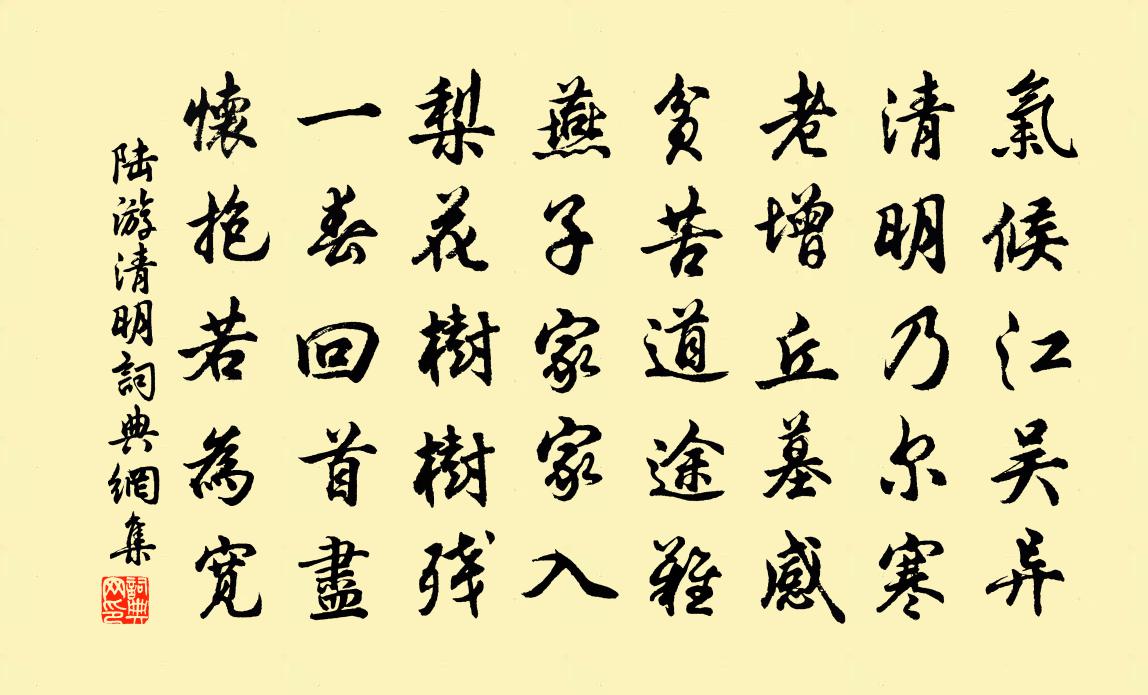 氣候江吴异
清明乃尔寒
老增丘墓感
貧苦道途難
燕子家家入
梨花樹樹残
一春回首盡
懷抱若為寬
陆游清明詞典網集
詞典网印